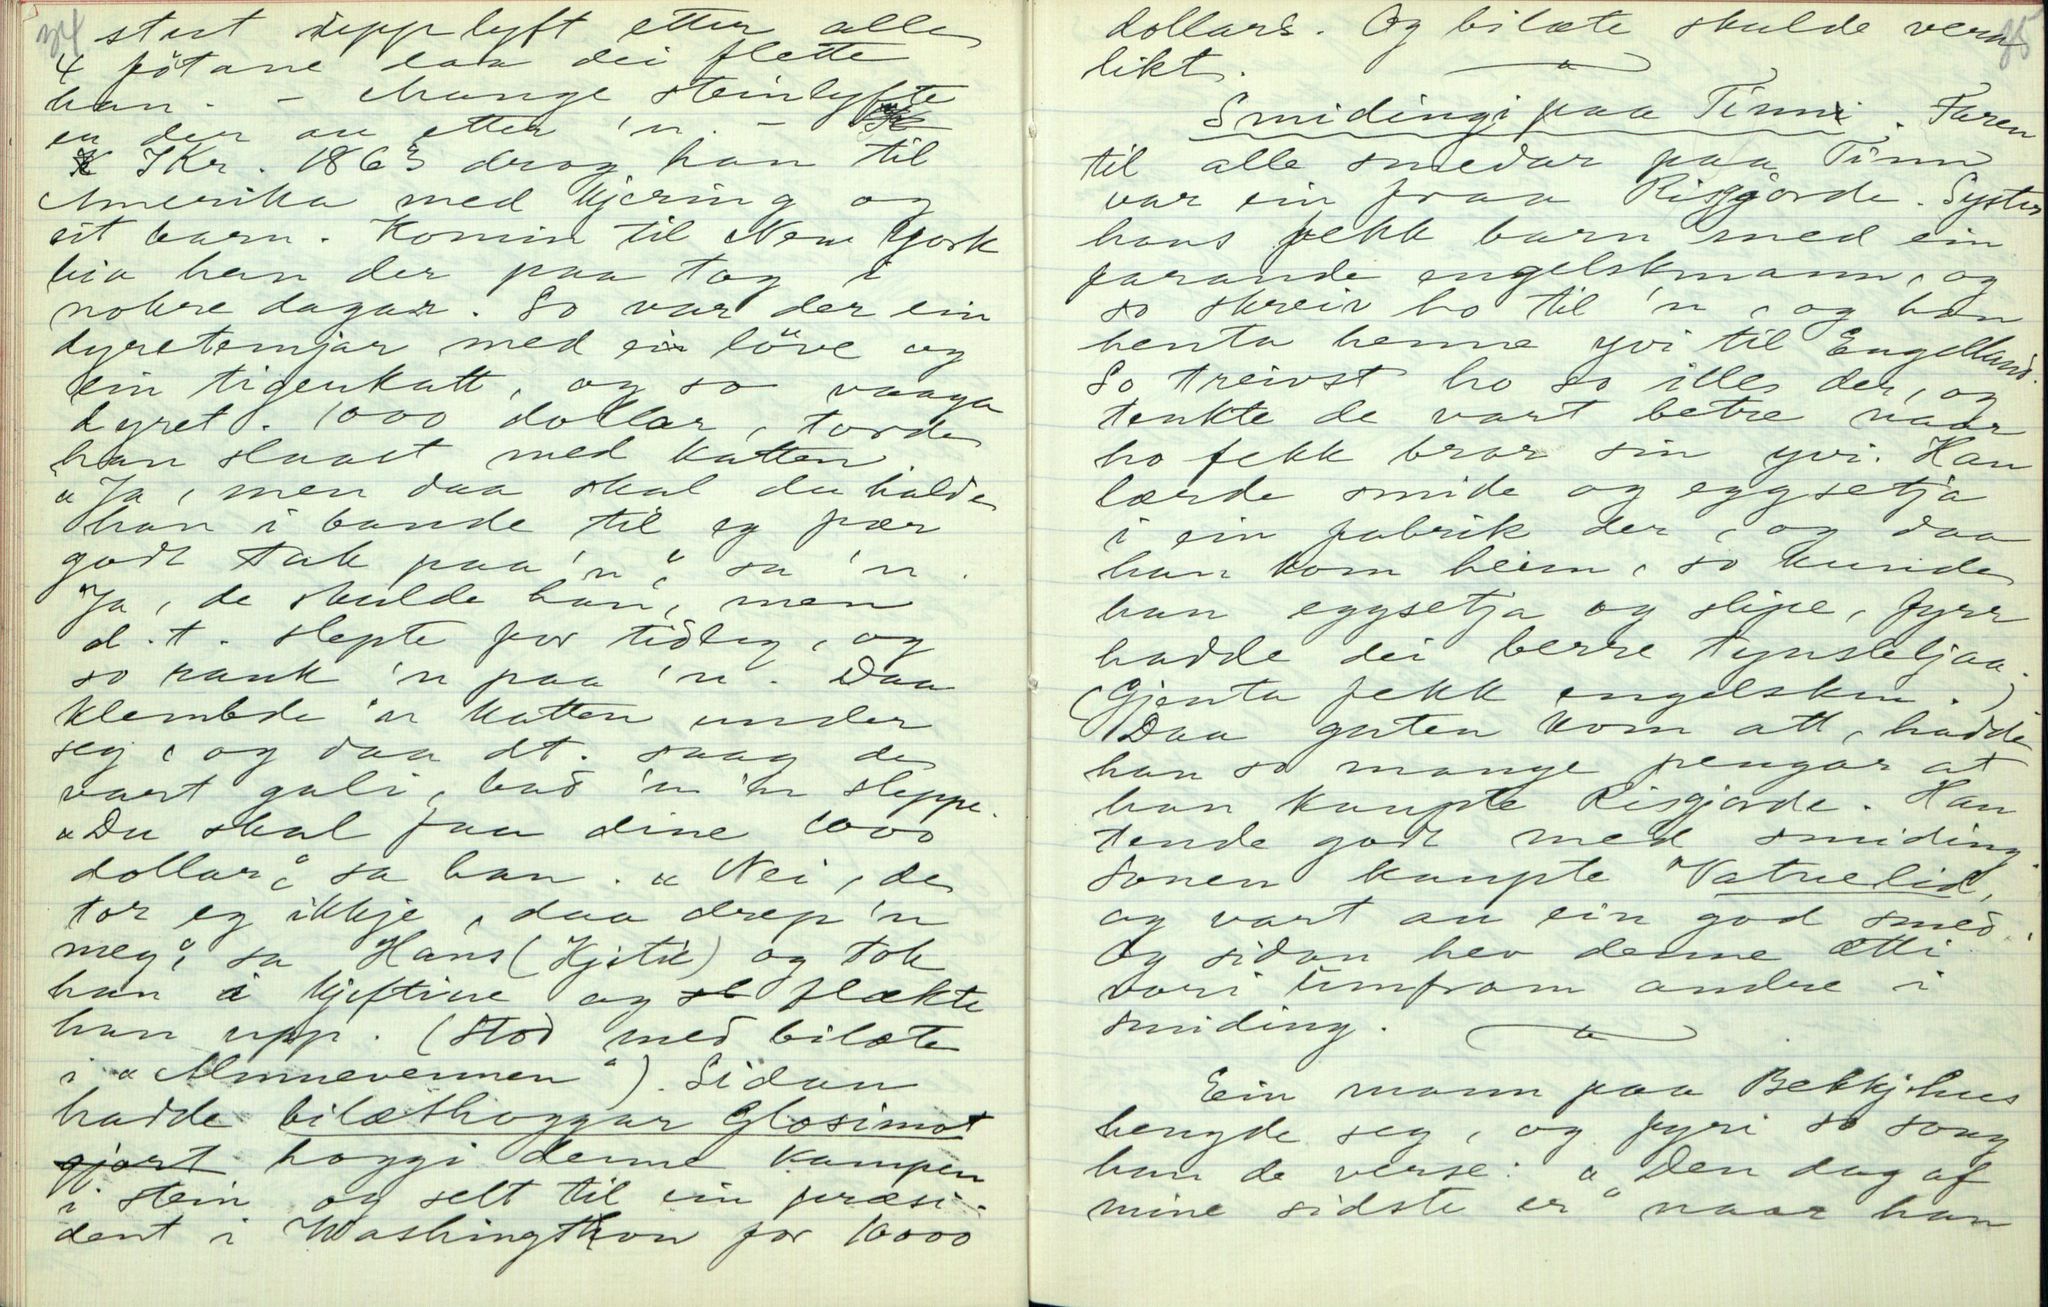 34
stort upplyft etter alle
4 fötane saa dei flette
han. – Mange steinlyfte
en der au etter 'n. –
I Kr. 1863 drog han til
Amerika med kjering og
eit barn. Komin til New York
bia han der paa tog i
nokre dagar. So var der ein
dyretemjar med ei löve og
ein tigerkatt, og so vaaga
dyret. 1000 dollar, torde
han slaast med katten
"Ja, men daa skal du halde
han i bande til eg fær
godt tak paa 'n", sa 'n.
Ja, de skulde han, men
d. t. slepte for tidleg, og
so rauk 'n paa 'n. Daa
klembde 'n katten under
seg, og daa dt. saag de
vart gali, bad 'n 'n sleppe.
"Du skal faa dine 1000
dollar", sa han. "Nei, de
tor eg ikkje, daa drep 'n
meg", sa Hans (Kjetil) og tok
han i kjeftine og flækte
han upp. (Stod med bilæte
i "Almuevennen"). Sidan
hadde bilæthoggar Glosimot
gjort hoggi denne kampen
i stein og selt til ein præsi-
dent i Washingthon for 10000
35
dollars. Og bilæte skulde vera
likt.
Smidingi paa Tinn. Faren
til alle smedar paa Tinn
var ein fraa Risgjorde. Syster
hans fekk barn med ein
farande engelskmann, og
so skreiv ho til 'n, og han
henta henne yvi til Engelland.
So treivst ho so ille der, og
tenkte de vart betre naar
ho fekk bror sin yvi. Han
lærde smide og eggsetja
i ein fabrik der, og daa
han kom heim, so kunde
han eggsetja og slipe, fyrr
hadde dei berre tynsleljaa.
(Gjenta fekk engelsken.)
Daa guten kom att, hadde
han so mange pengar at
han kaupte Risgjorde. Han
tende godt med smiding.
Sonen kaupte Vatnelid,
og vart au ein god smed.
Og sidan hev denne ætti
vori umfram andre i
smiding.
Ein mann paa Bekkjhus
hengde seg, og fyri so song
han de verse: "Den dag af
mine sidste er" naar han